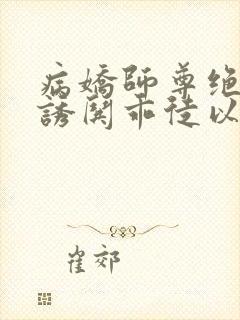 病嬌師尊绝
誘関乖徒以
崔郊